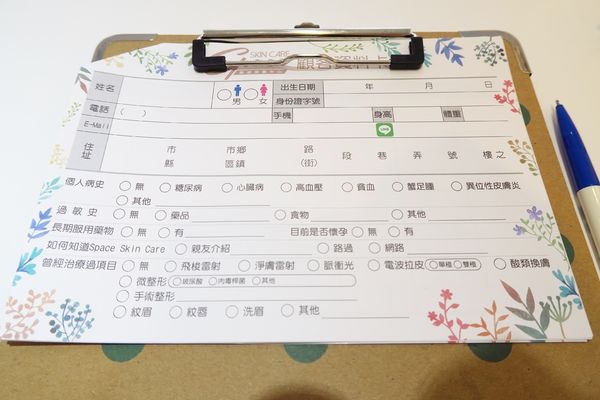 SKIN CARE
顧客資料卡
姓名 男 女 出生日期 年 月 日
身份證字號
電話 ( ) 手機 身高 體重
E-Mail LINE
住址 市縣 市鄉區鎮 路(街) 段 巷 弄 號 樓之
個人病史 無 糖尿病 心臟病 高血壓 貧血 蟹足腫 異位性皮膚炎
其他
過敏史 無 藥品 食物 其他
長期服用藥物 無 有 目前是否懷孕 無 有
如何知道Space Skin Care 親友介紹 路過 網路
曾經治療過項目 無 飛梭雷射 淨膚雷射 脈衝光 電波拉皮 單極 雙極 酸類換膚
微整形 玻尿酸 肉毒桿菌 其他
手術整形
紋眉 紋唇 洗眉 其他